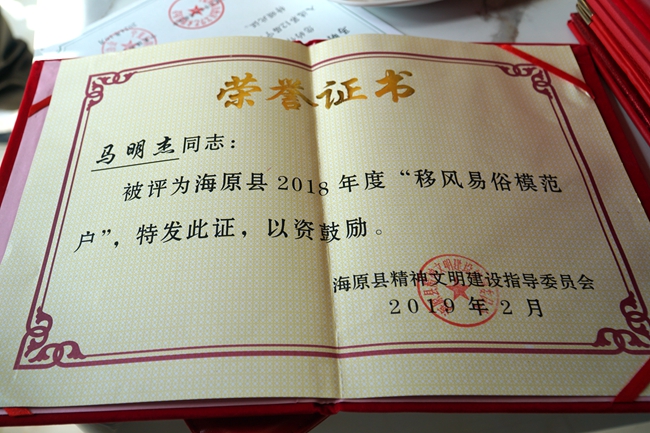 荣誉证书
马明杰同志：
被评为海原县2018年度“移风易俗模范
户”，特发此证，以资鼓励。
海原县精神文明建设指导委员会
2019年2月